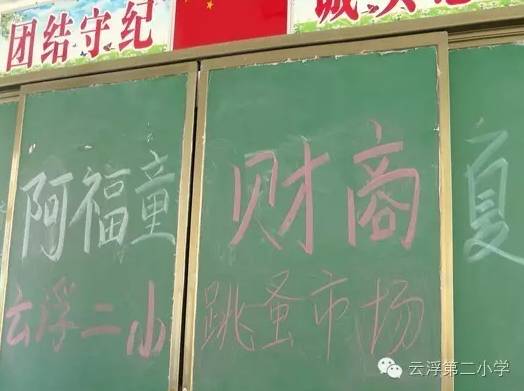 团结守纪
阿福童 财商 夏
云浮二小 跳蚤市场
云浮第二小学